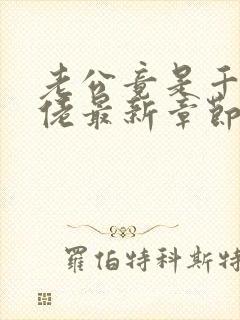 老公竟是千
佬最新章節
羅伯特科斯特